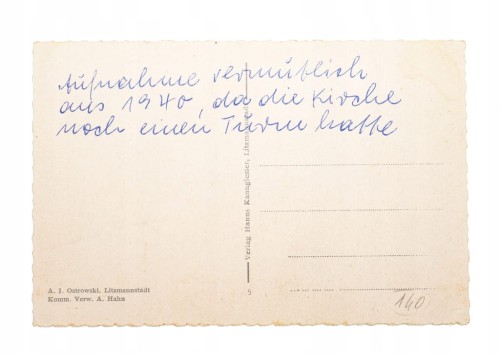 Aufnahme vermutlich
aus 1940, da die Kirche
noch einen Turm hatte
Verlag Hanns Kannegiesser, Litzmannstadt
A. J. Ostrowski, Litzmannstadt
Komm. Verw. A. Hahn
5
140